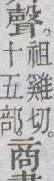 聲。
祖雞切。
十五部。
商書